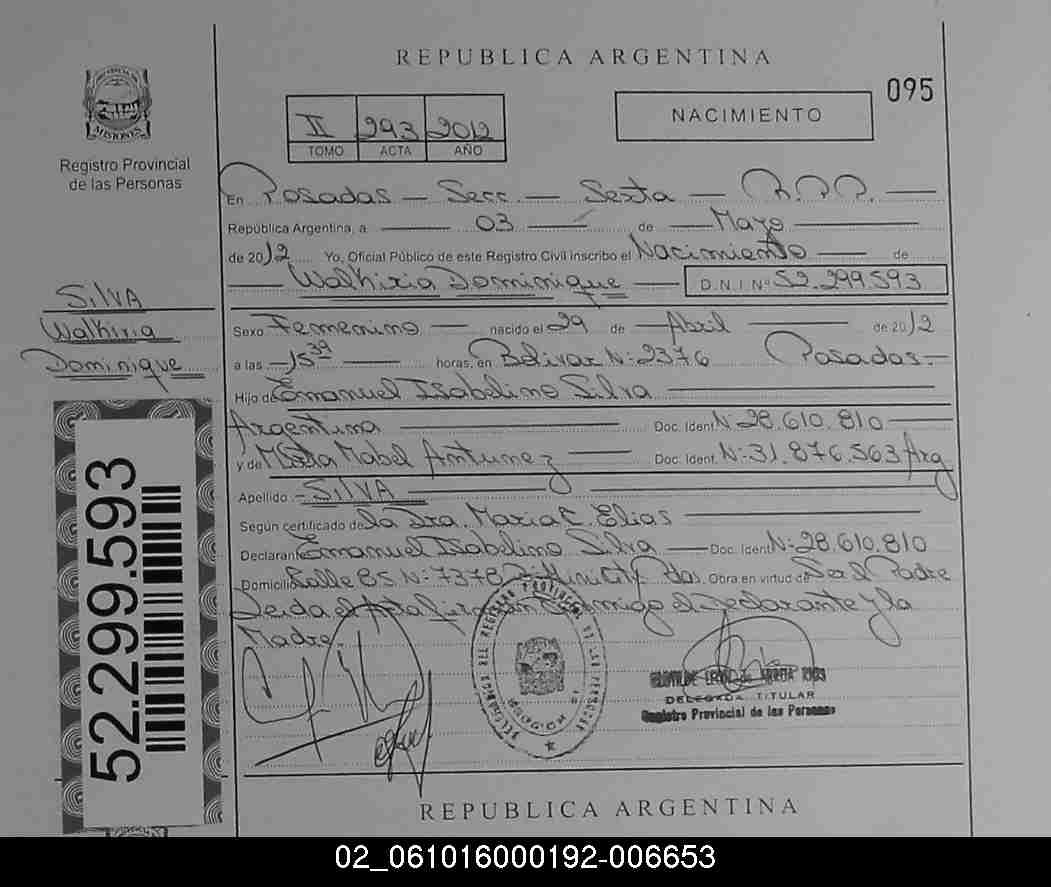 REPUBLICA ARGENTINA
095
II 293 2012
TOMO ACTA AÑO
NACIMIENTO
MISIONES
Registro Provincial
de las Personas
En Posadas - Secc. - Sexta - R.P.P.
República Argentina, a 03 de Mayo
de 2012 Yo, Oficial Público de este Registro Civil inscribo el Nacimiento de
Walkiria Dominique D.N.I Nº 52.299.593
SILVA
Walkiria
Dominique
Sexo Femenino nacido el 29 de Abril de 2012
a las 15 39 horas, en Bolivar Nº 2376 Posadas.-
Hijo de Emanuel Isabelino Silva
Argentina Doc. Ident. Nº 28.610.810
y de Mabel Antunez Doc. Ident. Nº 31.876.563 Arg
Apellido SILVA
Según certificado de la Dra. Maria C. Elias
Declarante Emanuel Isabelino Silva Doc. Ident Nº 28.610.810
Domicilio Calle 85 Nº 7378 Pdas. Obra en virtud de Ser el Padre
Leida el Acta firman Conmigo el Declarante y la
Madre.
DELEGADA TITULAR
Registro Provincial de las Personas
52.299.593
REPUBLICA ARGENTINA
02_061016000192-006653